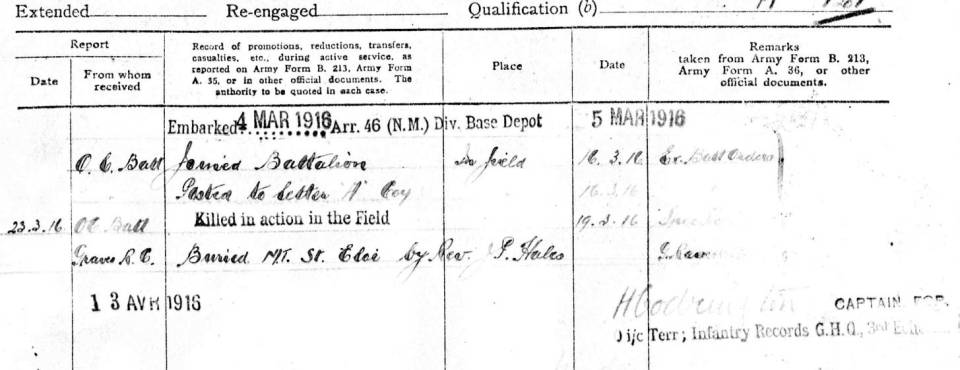 Extended Re-engaged Qualification (b)
Report
Date
From whom received
Record of promotions, reductions, transfers, casualties, etc., during active service, as reported on Army Form B. 213, Army Form A. 35, or in other official documents. The authority to be quoted in each case.
Place
Date
Remarks taken from Army Form B. 213, Army Form A. 36, or other official documents.
Embarked 4 MAR 1916 Arr. 46 (N.M.) Div. Base Depot 5 MAR 1916
O. C. Batt Joined Battalion In field 16.3.16 Batt Orders
Posted to letter "A" Coy 16.3.16
23.3.16 OC Batt Killed in action in the Field 19.3.16
Graves R. C. Buried MT. St. Eloi by Rev. J P. Hales
1 3 AVR 1916
CAPTAIN FOR.
O i/c Terr; Infantry Records G.H.Q., 3rd